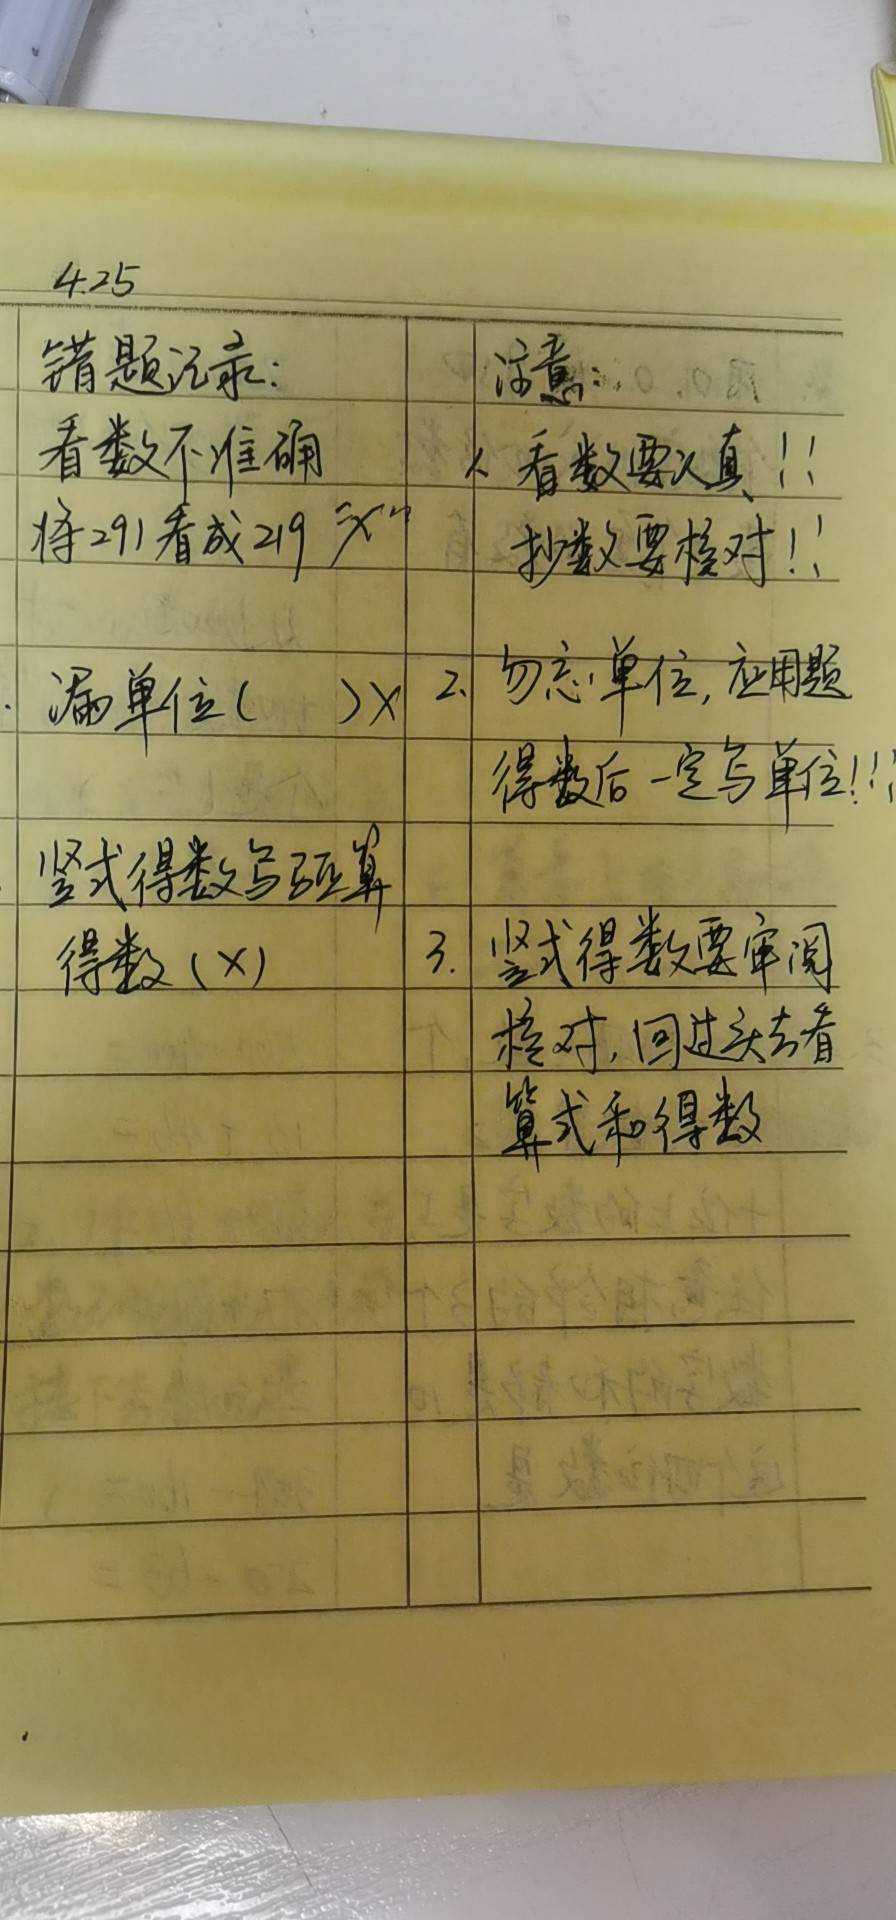 4.25
错题记录:
看数不准确
将291看成219 "X"
漏单位( )X
竖式得数写验算
得数(X)
注意:
1. 看数要认真!!
抄数要核对!!
2. 勿忘单位,应用题
得数后一定写单位!!!
3. 竖式得数要审阅
核对,回过头去看
算式和得数